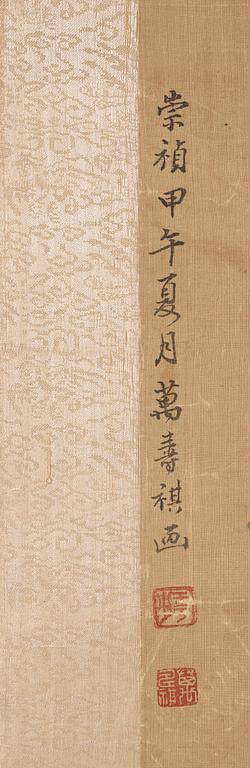 崇禎甲午夏月萬壽祺画